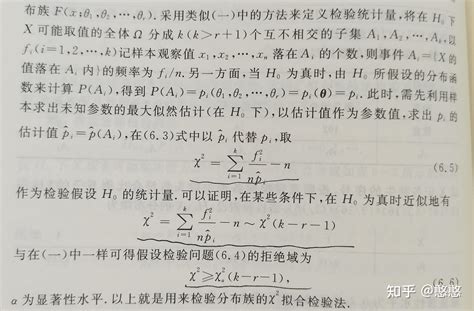 布族 F(x;θ₁,θ₂,…,θᵣ). 采用类似(一)中的方法来定义检验统计量,将在 H₀ 下
X 可能取值的全体 Ω 分成 k(k>r+1)个互不相交的子集 A₁,A₂,…,Aₖ,以
fᵢ(i=1,2,…,k)记样本观察值 x₁,x₂,…,xₙ 落在 Aᵢ 的个数,则事件 Aᵢ={X 的
值落在 Aᵢ 内}的频率为 fᵢ/n. 另一方面,当 H₀ 为真时,由 H₀ 所假设的分布函
数来计算 P(Aᵢ),得到 P(Aᵢ)=pᵢ(θ₁,θ₂,…,θᵣ)=pᵢ(θ)=pᵢ. 此时,需先利用样
本求出未知参数的最大似然估计(在 H₀ 下),以估计值作为参数值,求出 pᵢ 的
估计值 p̂ᵢ=P̂(Aᵢ),在(6.3)式中以 p̂ᵢ 代替 pᵢ,取
χ² = ∑ᵢ₌₁ᵏ fᵢ²/(np̂ᵢ) − n (6.5)
作为检验假设 H₀ 的统计量. 可以证明,在某些条件下,在 H₀ 为真时近似地有
χ² = ∑ᵢ₌₁ᵏ fᵢ²/(np̂ᵢ) − n ~ χ²(k−r−1)
与在(一)中一样可得假设检验问题(6.4)的拒绝域为
χ² ≥ χ²_α(k−r−1), (6.6)
α 为显著性水平. 以上就是用来检验分布族的χ²拟合检验法.
知乎 @悠悠